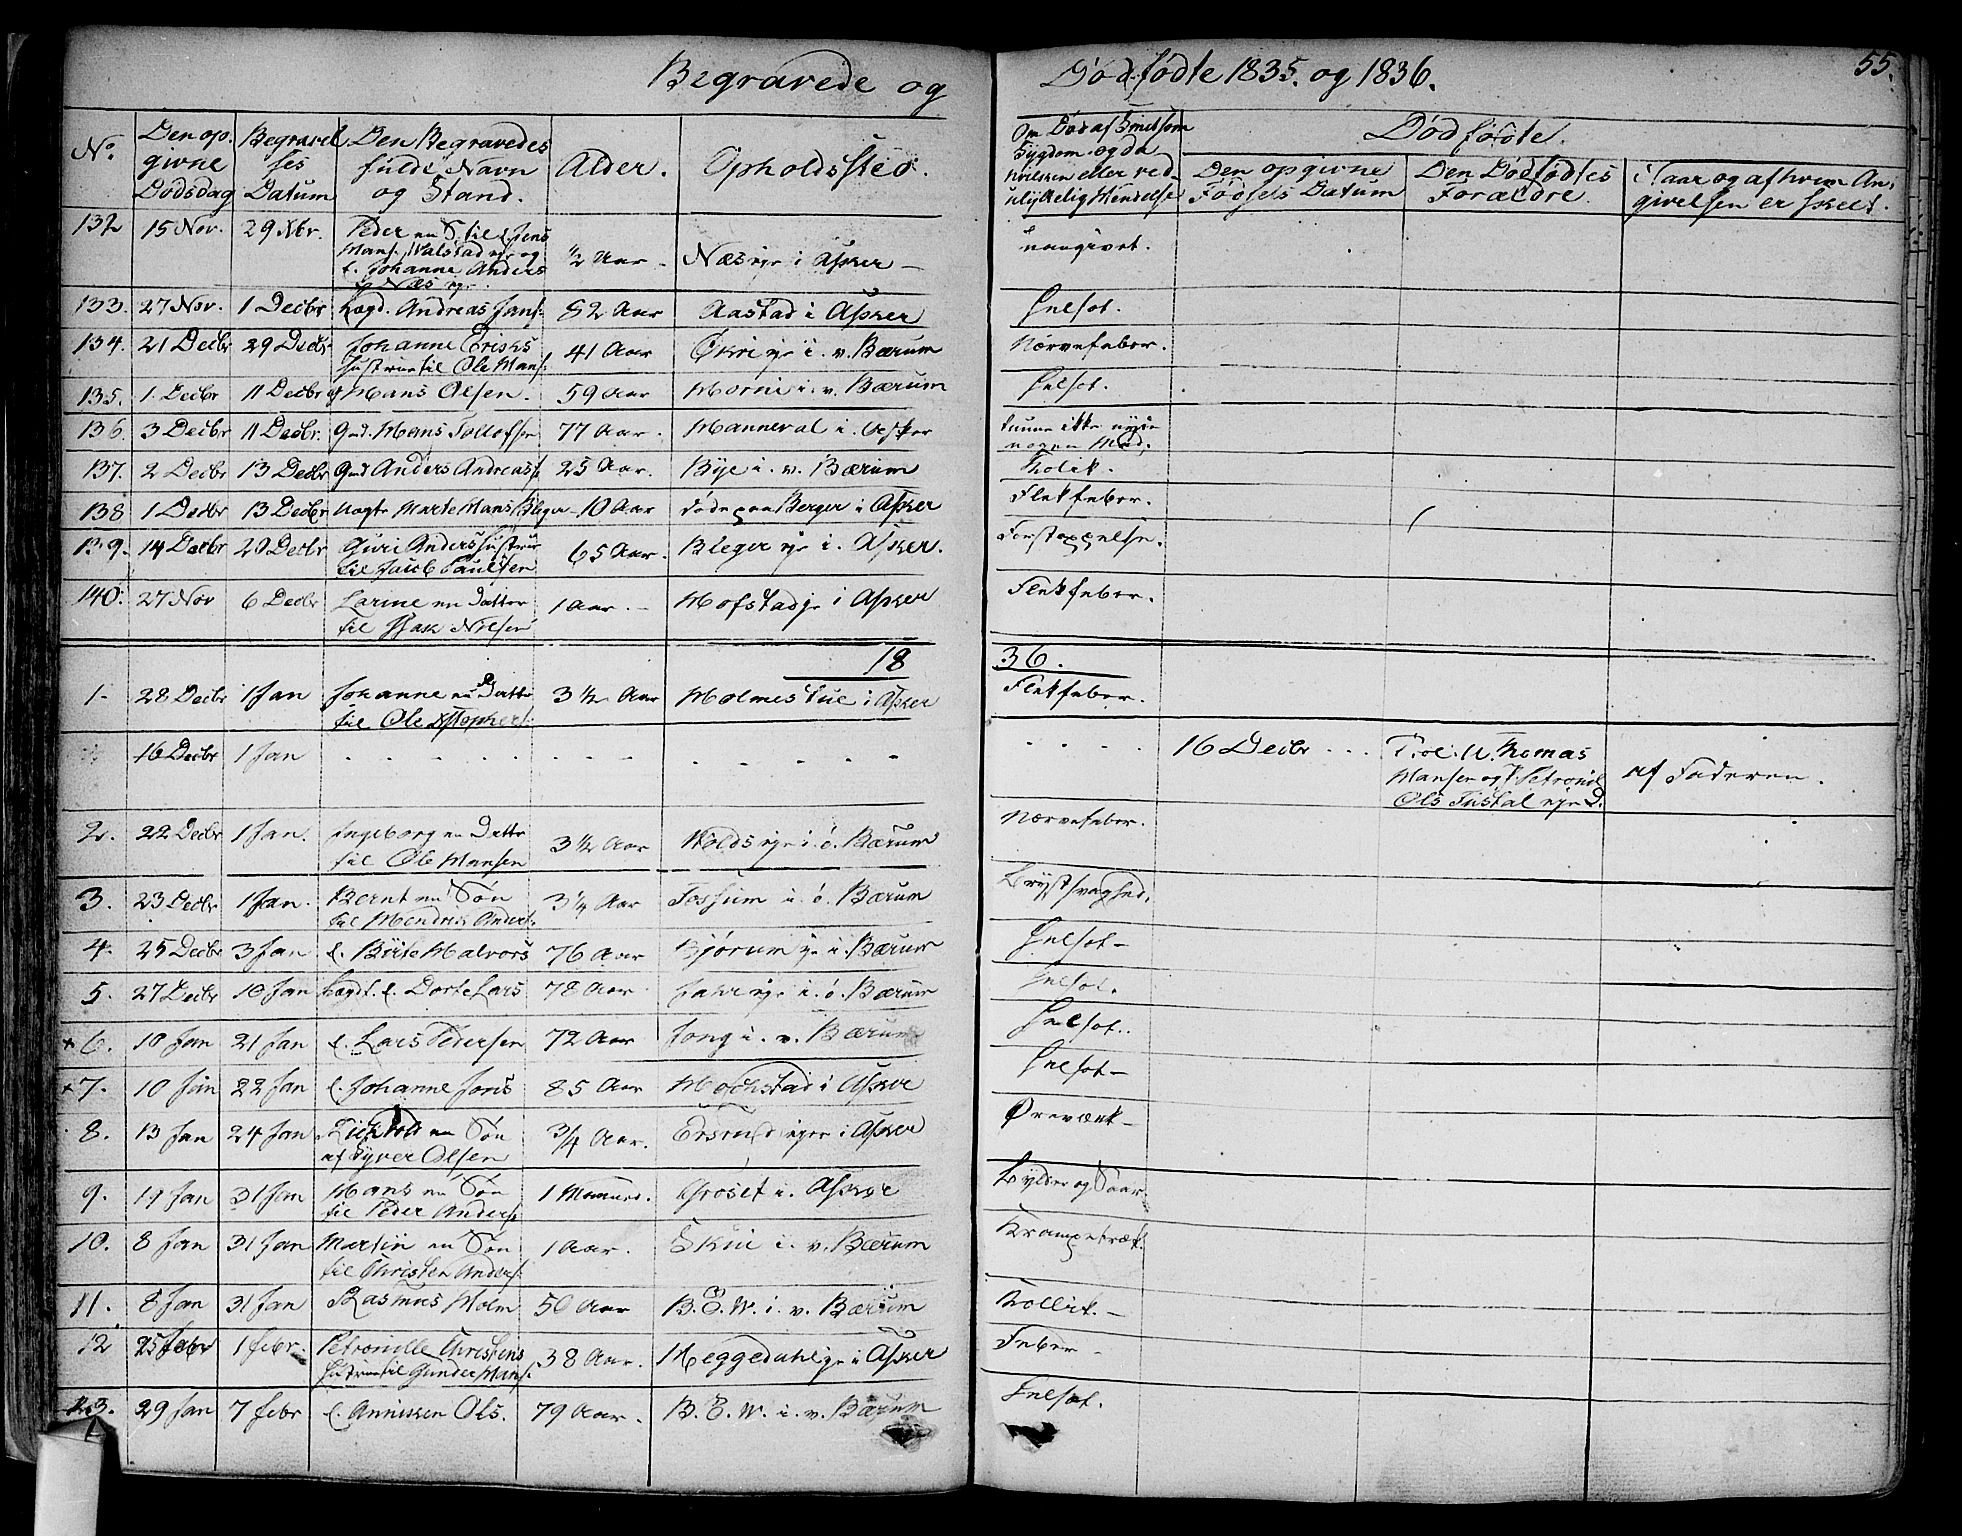 Begravede og Dødfødte 1835. og 1836.
55.
No.
Den op-
givne
Dødsdag
Begravel
ses
Datum
Den Begravedes
fulde Navn
og Stand.
Alder.
Opholdssted.
Om Død af Smitsom
Sygdom og da
hvilken eller ved
ulykkelig Hændelse
Dødfødte.
Den opgivne
Fødsels Datum
Den Dødfødtes
Forældre.
i Faar og af hvem An-
givelsen er skeet.
132 15 Nov. 29 Nbr. Peder en S. til
Hans. Valstad eje og
Johanne Anders
Næs eje ½ Aar - Næs eje i Asker - uangivet.
133. 27 Nov. 1 Decbr Lægd. Andreas Jans: 82 Aar Aastad i Asker Julsot.
134. 21 Decbr 29 Decbr Johanne Eriks
Hustrue til Ole Hans: 41 Aar Økri eje i. v. Bærum Nervefeber.
135. 1. Decbr 11 Decbr Hans Olsen. 59 Aar Horni i. v. Bærum Julsot.
136. 3 Decbr 11 Decbr. Gmd. Hans Tollofsen 77 Aar. Hanneval i. Asker kunne ikke nyde
nogen Mad.
137. 2 Decbr 13 Decbr Gmd Anders Andreass: 25 Aar. Bye i. v. Bærum Kolik.
138 1 Decbr 13 Decbr Marte Hans Bleger 10 Aar døde paa Berger i Asker Flekfeber.
139. 14 Decbr 20 Decbr Guri Anders Hustrue
til Jacob Paulsen 65 Aar. Bleger eje i. Asker. Forstoppelse.
140. 27 Nov 6 Decbr Larine en Datter
til Isak Nilsen 1 Aar. - Hofstad eje i Asker Flekfeber.
18 36.
1. 28 Decbr 1 Jan Johanne en Datter
til Ole 3 ½ Aar Holmestue i Asker Flekfeber.
16 Decbr 1 Jan 16 Decbr ... Thomas
Hansen og Petronil
Ols Tustal eje af Faderen.
2. 22 Decbr 1 Jan. Ingeborg en Datter
til Ole Hansen 3 ½ Aar eje i. ø. Bærum Nervefeber.
3. 23 Decbr 1 Jan. Bernt en Søn
til Hendrik Anders: 3 ¼ Aar Fossum i. ø. Bærum Brystsvaghed.
4. 25 Decbr 3 Jan E. Birte Halvors 76 Aar Bjørum eje i. Bærum Julsot -
5. 27 Decbr 10 Jan Lægdl. E. Dorte Lars 78 Aar eje i. ø. Bærum Julsot.
6. 10 Jan 21 Jan E. Lars Pedersen 72 Aar Jong i. v. Bærum Julsot.
7. 10 Jan 22 Jan E. Johanne Jons 85 Aar Hogstad i Asker Julsot -
8. 13 Jan 24 Jan en Søn
af Syver Olsen ¾ Aar. eje i Asker Øreværk -
9. 19 Jan 31 Jan Hans en Søn
til Peder Anders: 1 Maaned. Grøset i. Asker Bylder og Saar
10. 8 Jan 31 Jan Martin en Søn
til Christen Anders: 1 Aar. Skui i. v. Bærum Krampetræk.
11. 8 Jan 31 Jan Rasmus Holm 50 Aar B. E. W. i. v. Bærum Kollik. -
12 25 Febr 1 Febr. Petronille Christens
Hustrue til Gunder Hans: 38 Aar. Heggedahl eje i Asker Feber -
13. 29 Jan 7 Febr E. Anniken Ols. 79 Aar. B. E. W. i. v. Bærum Julsot.